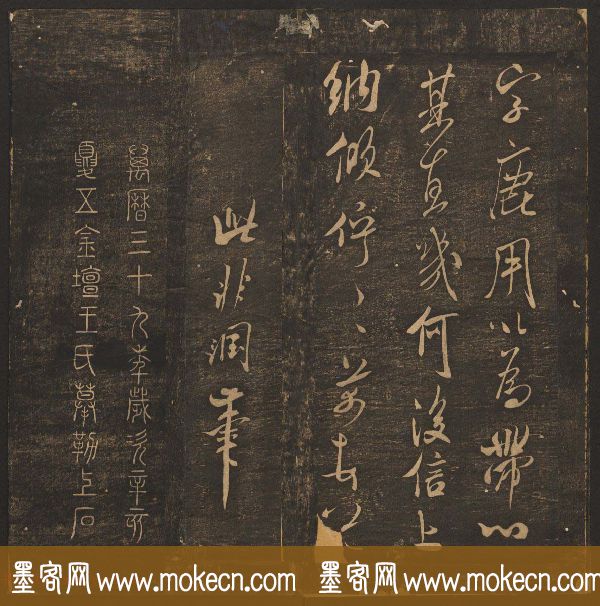 字鹿用以為帶
某直幾何後信上
納傾佇
此非潤筆
萬曆三十九季歲次辛亥
夏五金壇王氏摹勒上石
墨客网 www.mokecn.com 墨客网 www.mokecn.com